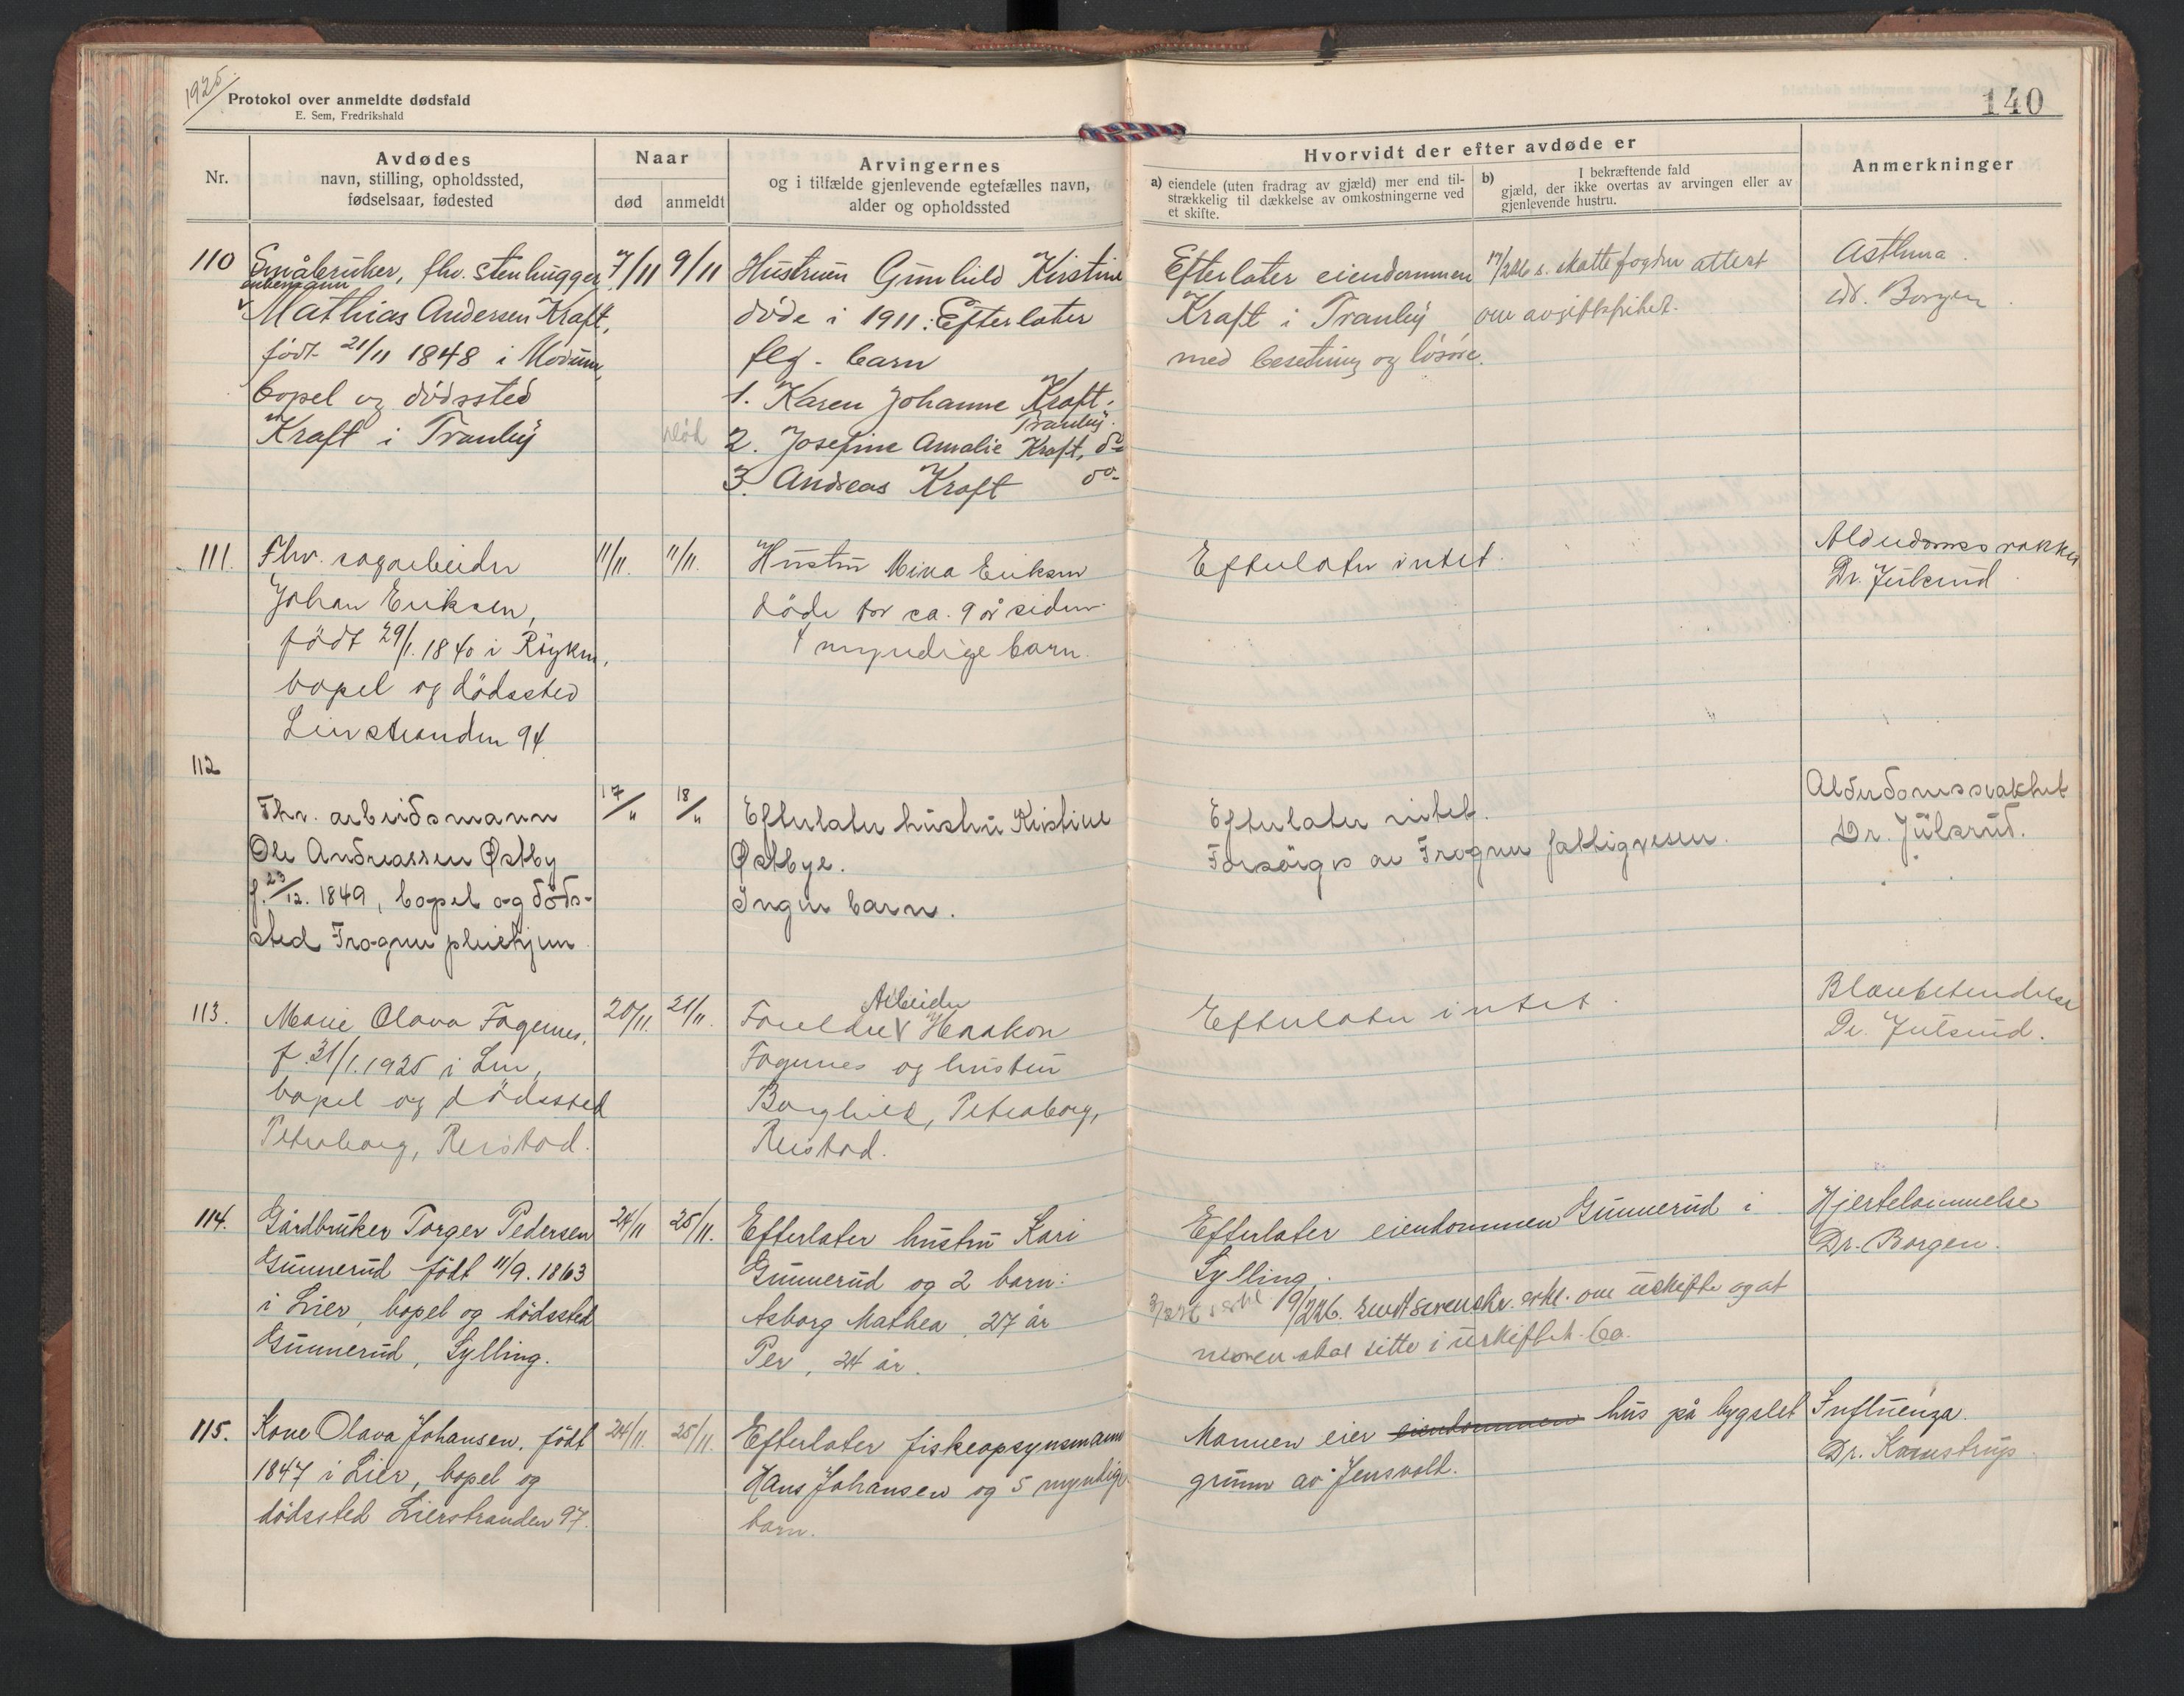 1925.
Protokol over anmeldte dødsfald
E. Sem, Fredrikshald
140
Nr.
Avdødes
navn, stilling, opholdssted,
fødselsaar, fødested
Naar
død
anmeldt
Arvingernes
og i tilfælde gjenlevende egtefælles navn,
alder og opholdssted
Hvorvidt der efter avdøde er
a) eiendele (uten fradrag av gjæld) mer end til-
strækkelig til dækkelse av omkostningerne ved
et skifte.
b) I bekræftende fald
gjæld, der ikke overtas av arvingen eller av
gjenlevende hustru.
Anmerkninger
110
Småbruker, fhv. stenhugger
enkemann
Mathias Andersen Kraft,
født 21/11 1848 i Modum,
bopel og dødssted
Kraft i Tranby
7/11
9/11
død
Hustruen Gunhild Kirstine
døde i 1911. Efterlater
flg. barn
1. Karen Johanne Kraft,
Tranby.
2. Josefine Amalie Kraft, do
3. Andreas Kraft do-
Efterlater eiendommen
Kraft i Tranby
med besetning og løsøre.
17/2 26 s. skattefogden attest
om avgiftsfrihet.
Asthma.
Dr. Borgen.
111.
Fhv. sagarbeider
Johan Eriksen,
født 29/1. 1840 i Røyken,
bopel og dødssted
Lierstranden 94
11/11.
11/11.
Hustru Mina Eriksen
døde for ca. 9 år siden.
4 myndige barn.
Efterlater intet.
Alderdomssvakhet
Dr. Julsrud.
112
Fhv. arbeidsmann
Ole Andreassen Østby
f. 23/12. 1849, bopel og døds-
sted Frogner pleiehjem
17/11
18/11
Efterlater hustru Kristine
Østbye.
Ingen barn.
Efterlater intet.
Forsørges av Frogner fattigvesen.
Alderdomssvakhet
Dr. Julsrud.
113.
Marie Olava Fagernes,
f. 31/1. 1925 i Lier,
bopel og dødssted
Petersborg, Reistad.
20/11.
21/11.
Arbeider
Foreldre Haakon
Fagernes og hustru
Borghild, Petersborg,
Reistad.
Efterlater intet.
Blærebetendelse
Dr. Julsrud.
114.
Gårdbruker Torger Pedersen
Gunnerud født 11/9. 1863
i Lier, bopel og dødssted
Gunnerud, Sylling.
24/11
25/11.
Efterlater hustru Kari
Gunnerud og 2 barn:
Asborg Mathea, 27 år
Per, 24 år.
Efterlater eiendommen Gunnerud i
Sylling.
9/2 26. sendt sorenskr. erkl. om uskifte og at
moren skal sitte i uskiftet bo.
Hjertelammelse
Dr. Borgen.
115.
Kone Olava Johansen, født
1847 i Lier, bopel og
dødssted Lierstranden 97.
24/11.
25/11.
Efterlater fiskeopsynsmann
Hans Johansen og 5 myndige
barn.
Mannen eier eiendommen hus på bygslet
grunn av Jensvold.
Influenza.
Dr. Kamstrup